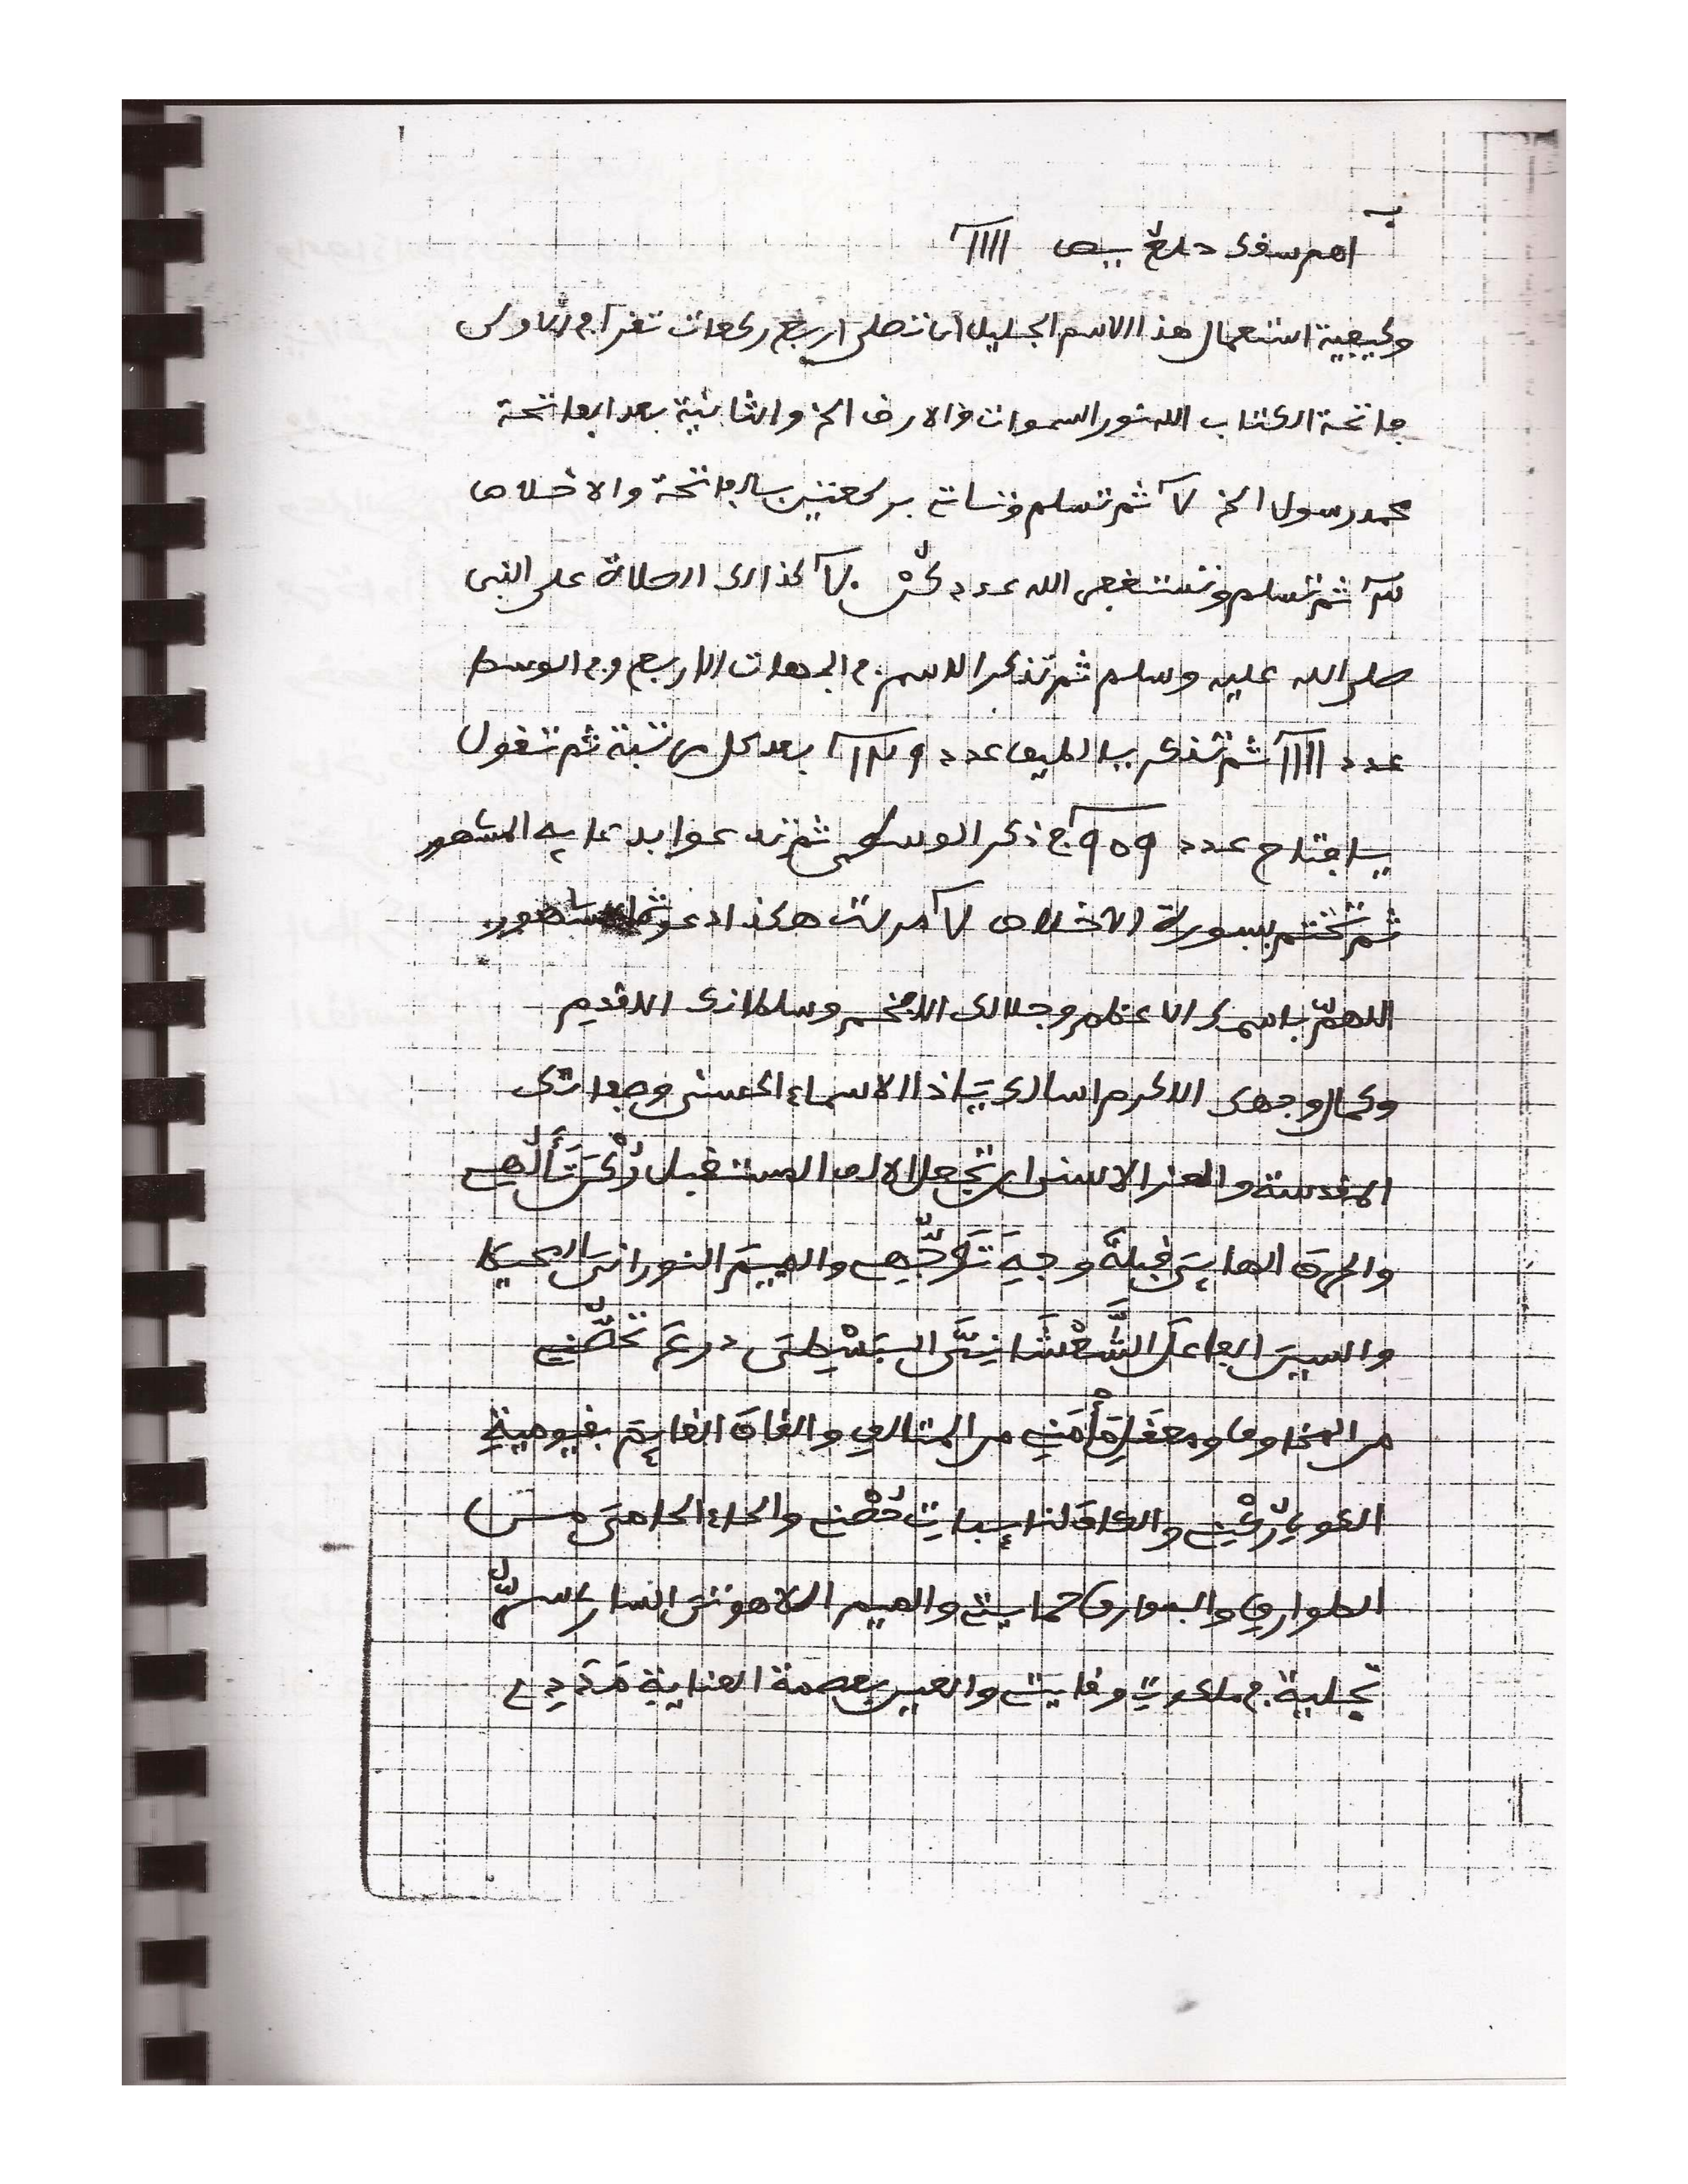 اهم سفك حلع يص ١١١١
وكيفية استعمال هذا الاسم الجليل ان تصلى اربع ركعات تقرأ في الاولى
فاتحة الكتاب الله نور السموات والارض الخ والثانية بعد الفاتحة
محمد رسول الخ ٧ ثم تسلم وتات بركعتين بالفاتحة والاخلاص
ثم تسلم وتستغفر الله عدد ٧٠ كذالك الصلاة على النبى
صلى الله عليه وسلم ثم تذكر الاسم في الجهات الاربع وفي الوسط
عدد ١١١١ ثم تذكر يالطيف عدد ١٢٩ بعد كل مرتبة ثم تقول
يافتاح عدد ٩٥٩ في ذكر الوسطى ثم تدعوا بدعايه المشهور
ثم تختم بسورة الاخلاص ٧ مرات هكذا دعو
اللهمّ باسمك الاعظم وجلالك الافخم وسلطانك الاقديم
وكمال وجهك الاكرم اسالك يَا ذا الاسماء الحسنى وصفاتك
المقدسة والعز الاسنى ان تجعل الالف المستقبل رُكْنَ تَأَلُّهِى
والهاء الهايىَ قبلةَ وجهَ تَوَجُّهِى والميمَ النورانىَ المحيط
والسينَ الفاعلَ الشَّعْشَانِىَّ البَسْطِىَ درعَ تحصُّنِى
من المخاوف ومعقلَ مَأْمَنِى من المتالف والقافَ القايمَ بقيومية
الكون رُكْنِى والكافَ لنا إسبات حُصْنِى والحاء الحامىَ من
الطوارق والبوارق حمايتى والميم اللاهوتىَ السارىَ سِرُّ
تجلية في ملكوت وقايتى والعين بعصمة العناية مَدَدِى